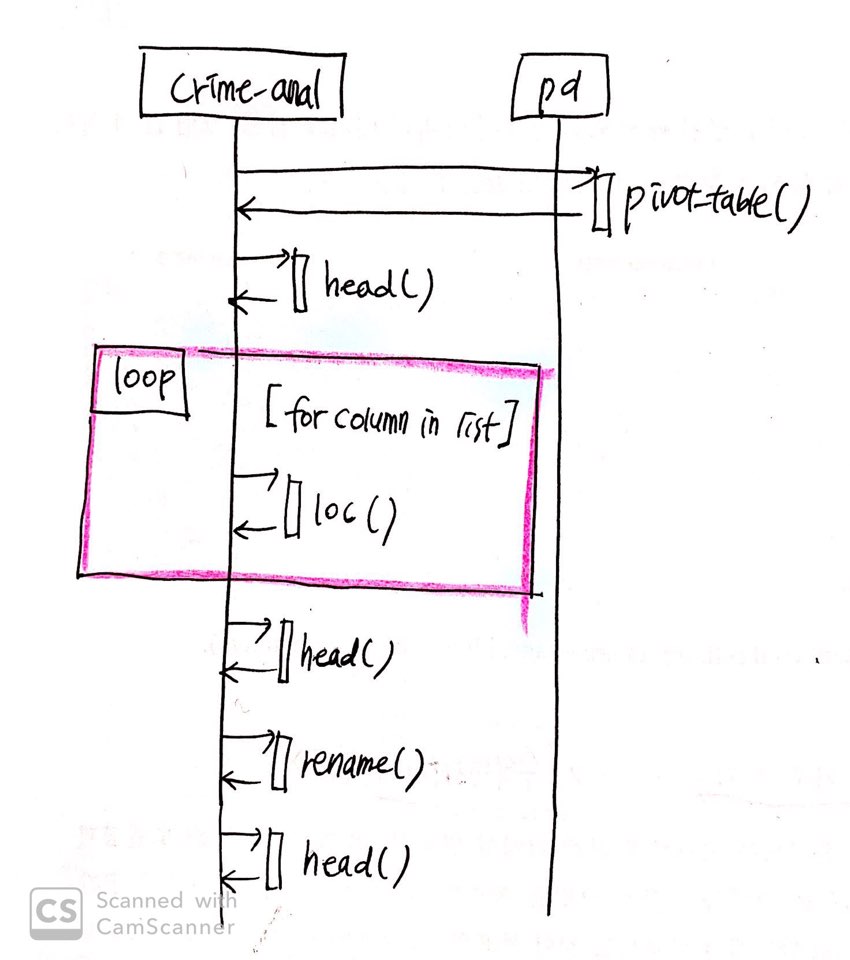 crime-anal
pd
pivot_table()
head()
loop
[for column in list]
loc()
head()
rename()
head()
CS
Scanned with
CamScanner